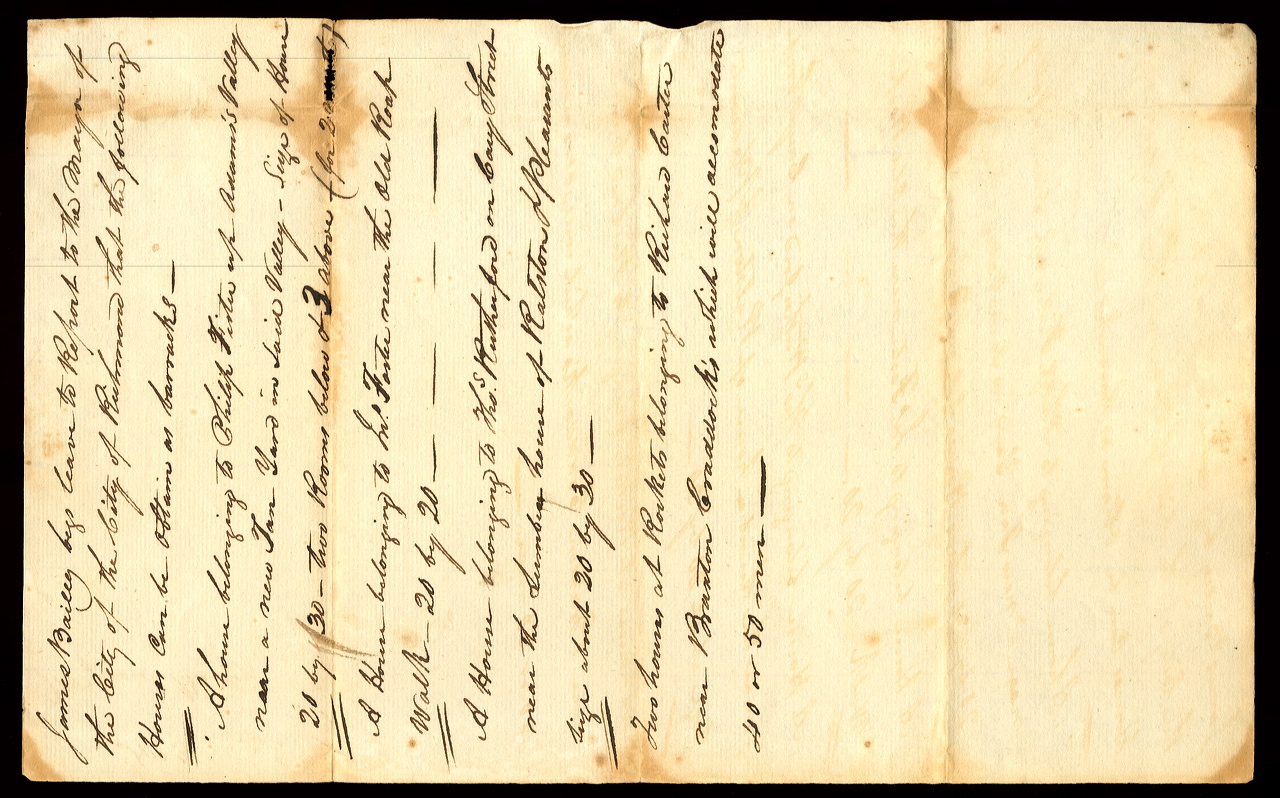 James Bailey begs leave to Report to the Mayor of
the City of the City of Richmond that the following
Houses can be obtain as barracks —
A house belonging to Philip Fister up Adams's Valley
near a new Tan Yard in Said Valley - Size of House
20 by 30 - two Rooms below & 3 above (for 2
A House belonging to Jno. Foster near the Old Roap
Walk - 20 by 20 —
A House belonging to Thos. Rutherford on Cary Street
near the Lumber house of Ralston & Pleasants
Size about 20 by 30 —
Two houses at Rockets belonging to Richard Carter
near Branton Craddock's which will accomodate
40 or 50 men —